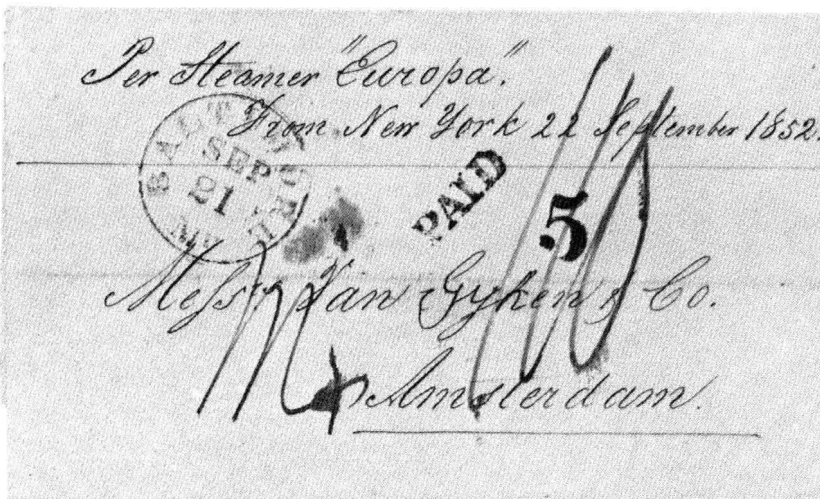 Per Steamer "Europa".
From New York 22 September 1852.
BALTIMORE
SEP
21
MD
PAID
5
Messrs Van Gyken & Co.
Amsterdam.